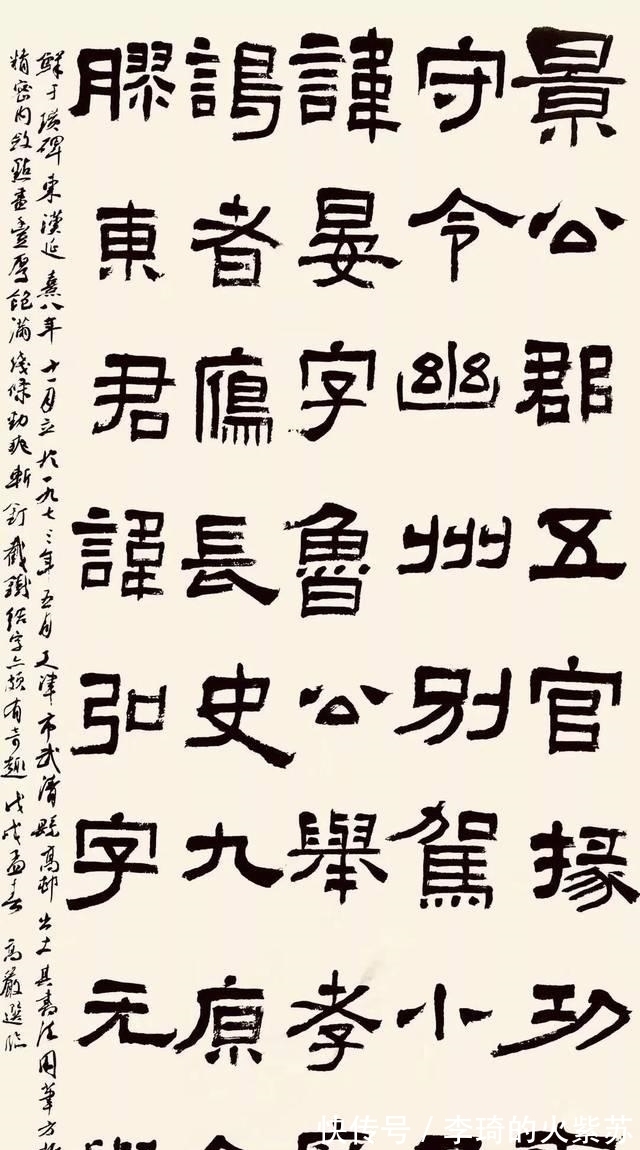 景公郡五官掾功
守令幽州別駕小
諱晏字魯公舉孝
謁者鴈長史九原
膠東君諱弘字元
鮮于璜碑東漢延熹八年十一月立於一九七三年五月天津市武清縣高邨出土其書法用筆方折
精密内斂點畫豐厚飽滿綫條勁爽斬釘截鐵結字亦頗有奇趣戊戌孟春 高嚴選臨
快传号 / 李琦的火紫苏